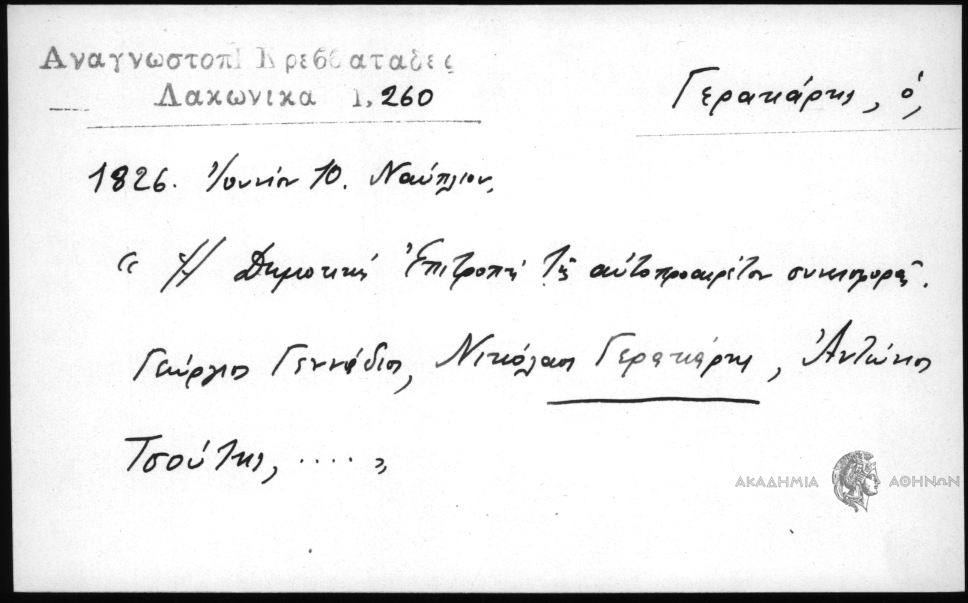 Αναγνωστοπ Κρεββαταδες
Λακωνικα 1, 260
Γερακάρης, ὁ,
1826. Ἰουνίου 10. Ναύπλιον,
" Ἡ Δημοτική Ἐπιτροπή τῆς αὐτοπροαιρέτου συνεισφορᾶς.
Γεώργιος Γεννάδιος, Νικόλαος Γερακάρης, Ἀντώνιος
Τσούνης, .... "
ΑΚΑΔΗΜΙΑ ΑΘΗΝΩΝ